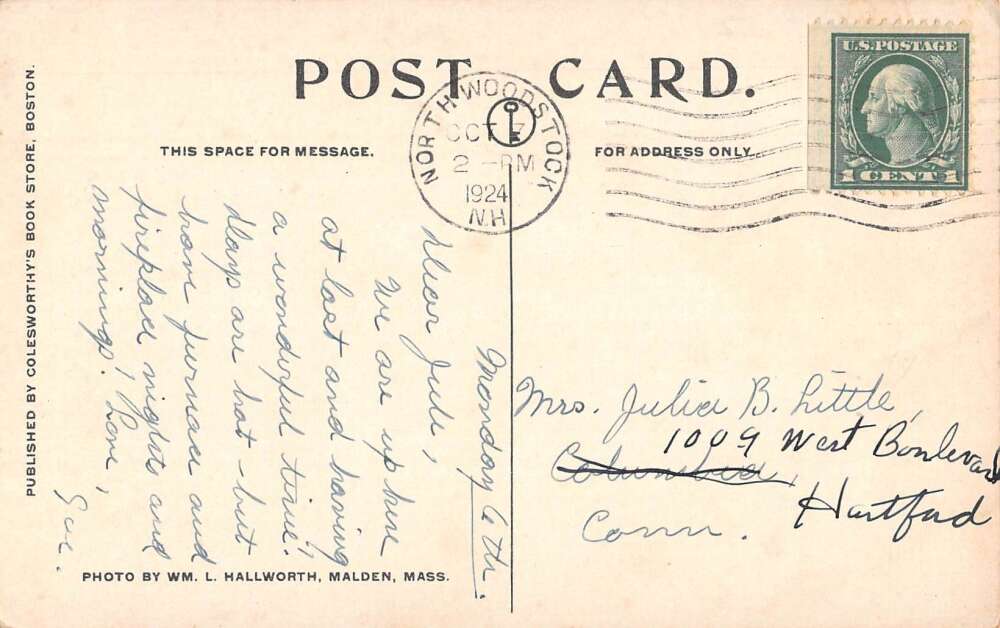 POST CARD.
THIS SPACE FOR MESSAGE.
FOR ADDRESS ONLY.
NORTH WOODSTOCK
OCT 7
2 - PM
1924
N.H.
U.S. POSTAGE
1 CENT 1
Monday 6th.
Dear Jule,
We are up here
at last and having
a wonderful time!
days are hot - but
have furnace and
fireplace nights and
mornings! Love,
Sue.
Mrs. Julia B. Little,
1009 West Boulevard
Columbia,
Hartford
Conn.
PUBLISHED BY COLESWORTHY'S BOOK STORE, BOSTON.
PHOTO BY WM. L. HALLWORTH, MALDEN, MASS.